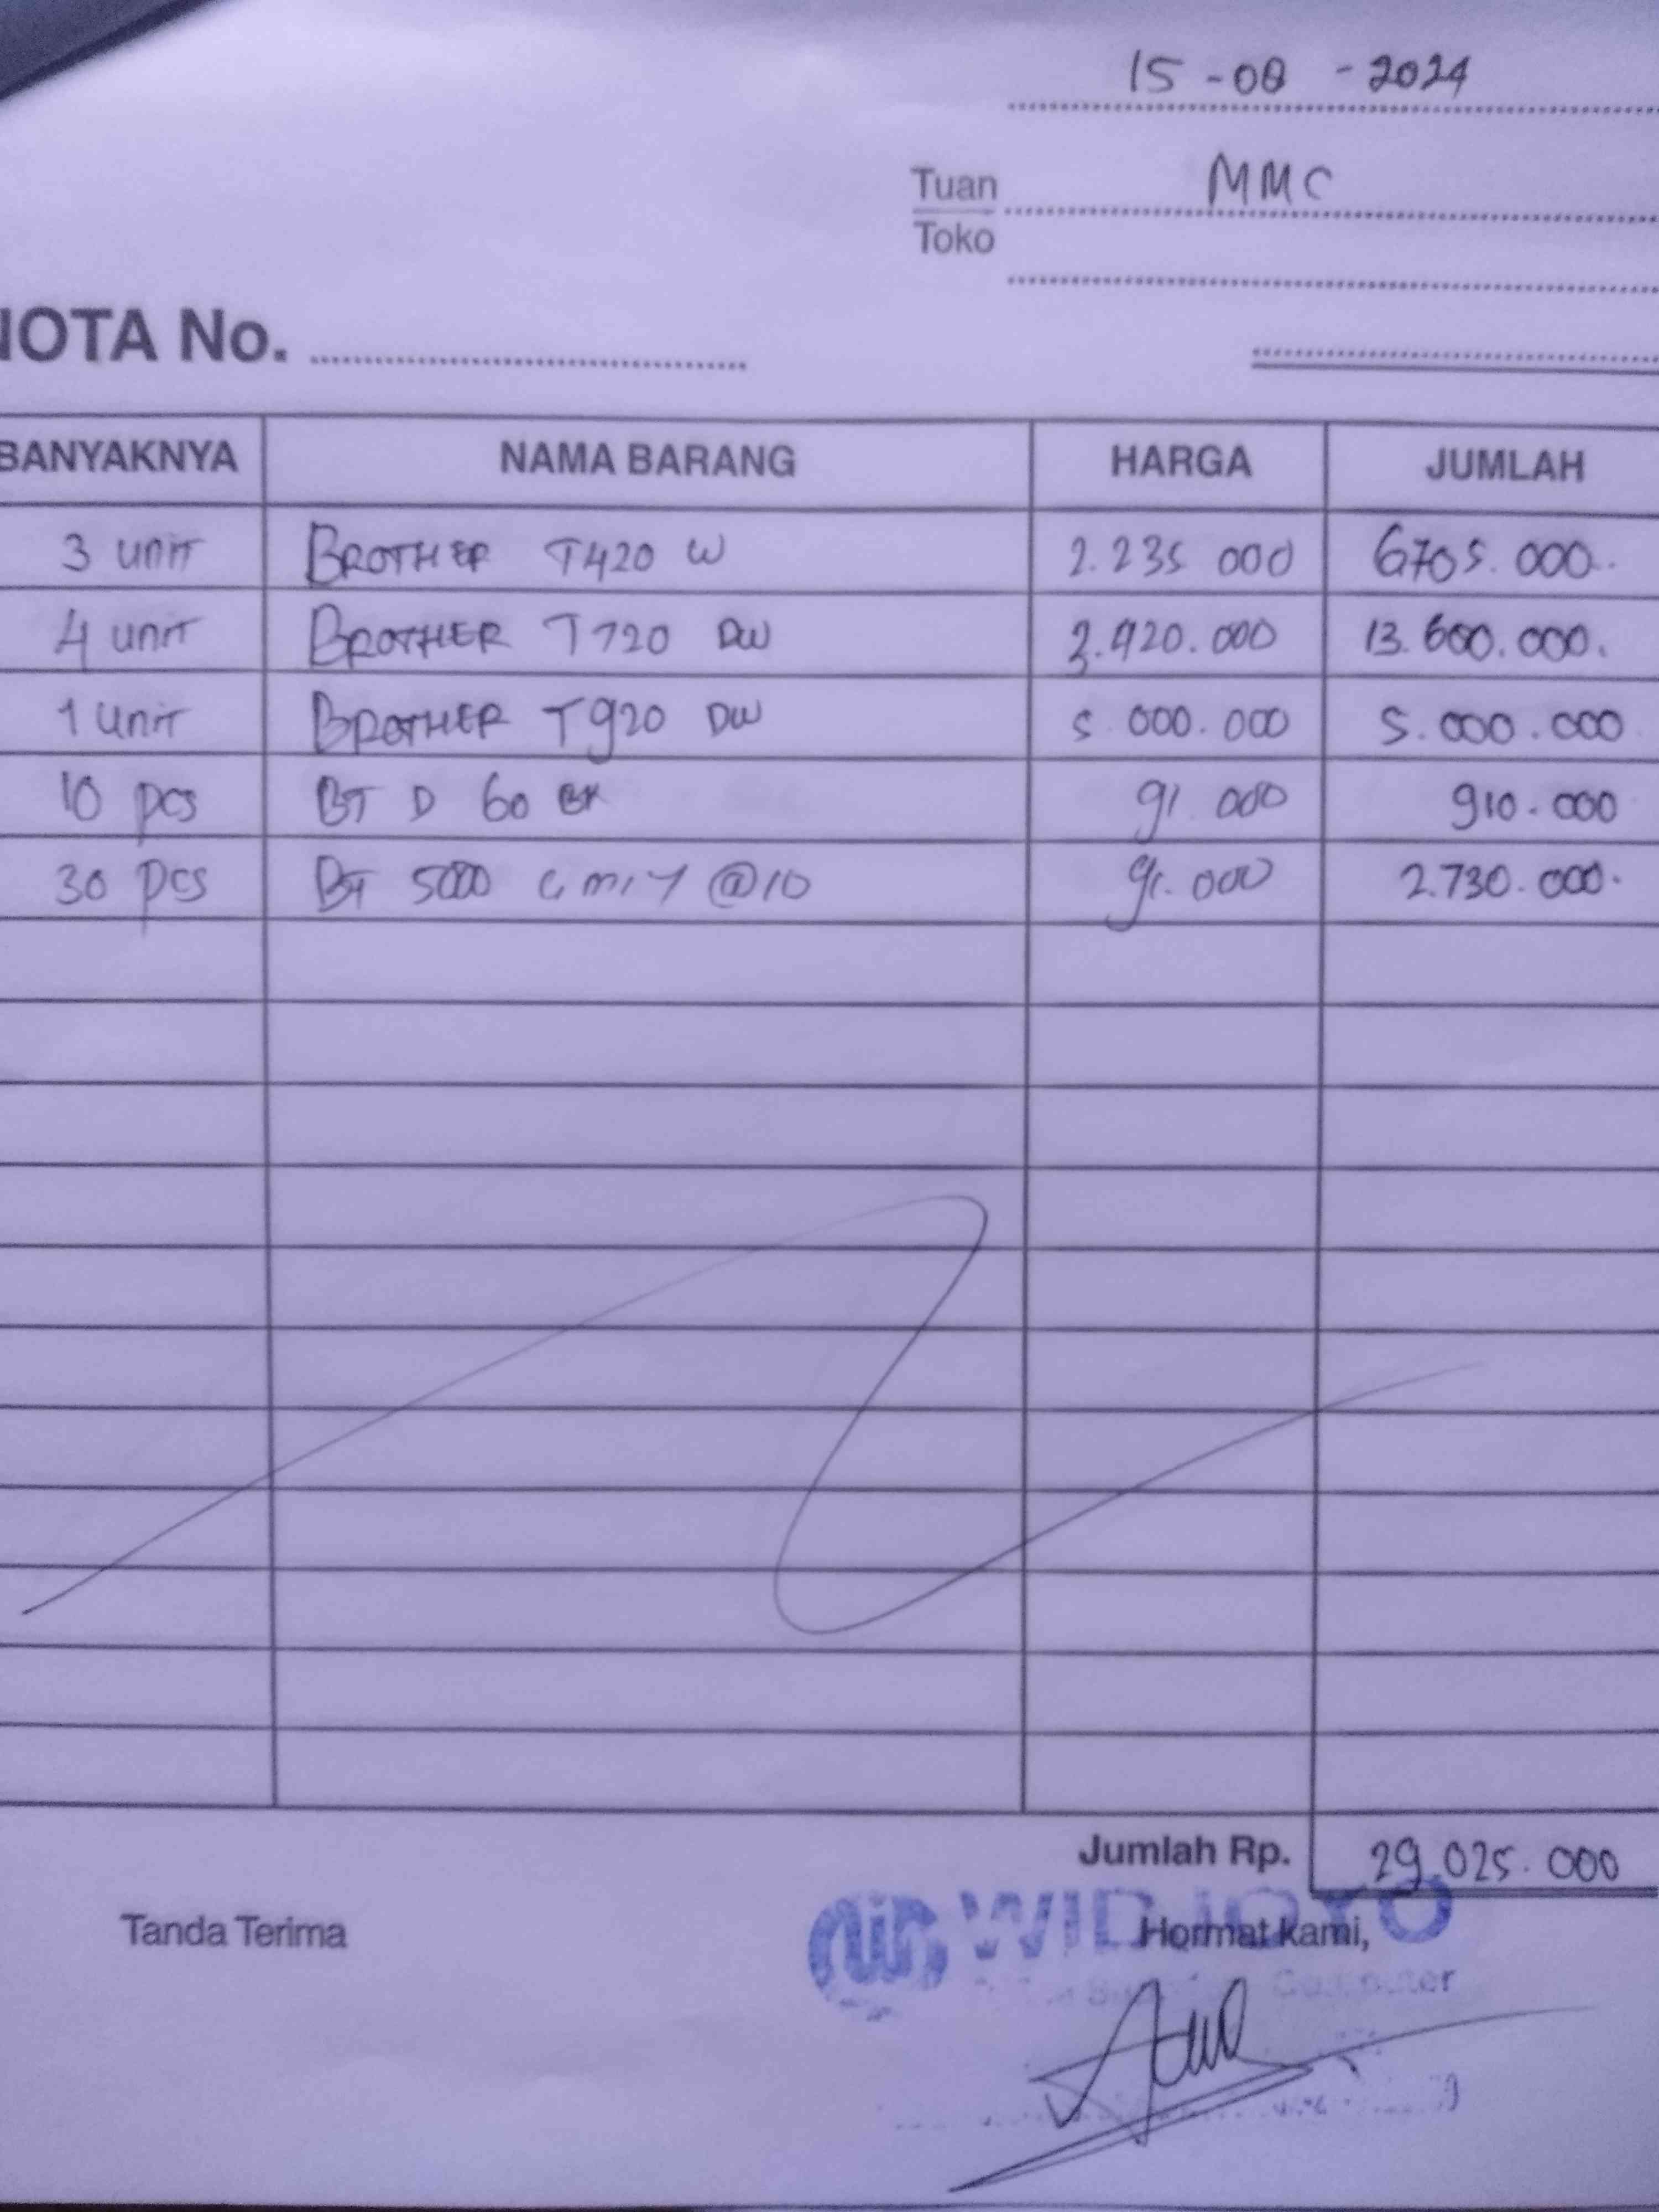 15-08-2024
Tuan MMC
Toko
NOTA No.
BANYAKNYA NAMA BARANG HARGA JUMLAH
3 unit BROTHER T420 W 2.235 000 6705.000.
4 unit BROTHER T720 DW 3.420.000 13.680.000.
1 unit BROTHER T920 DW 5 000.000 5.000.000
10 pcs BT D 60 BK 91 000 910.000
30 pcs BT 5000 C M 1 Y @10 91.000 2.730.000.
Jumlah Rp. 29.025.000
Tanda Terima Hormat kami,
WIDJOYO
Computer